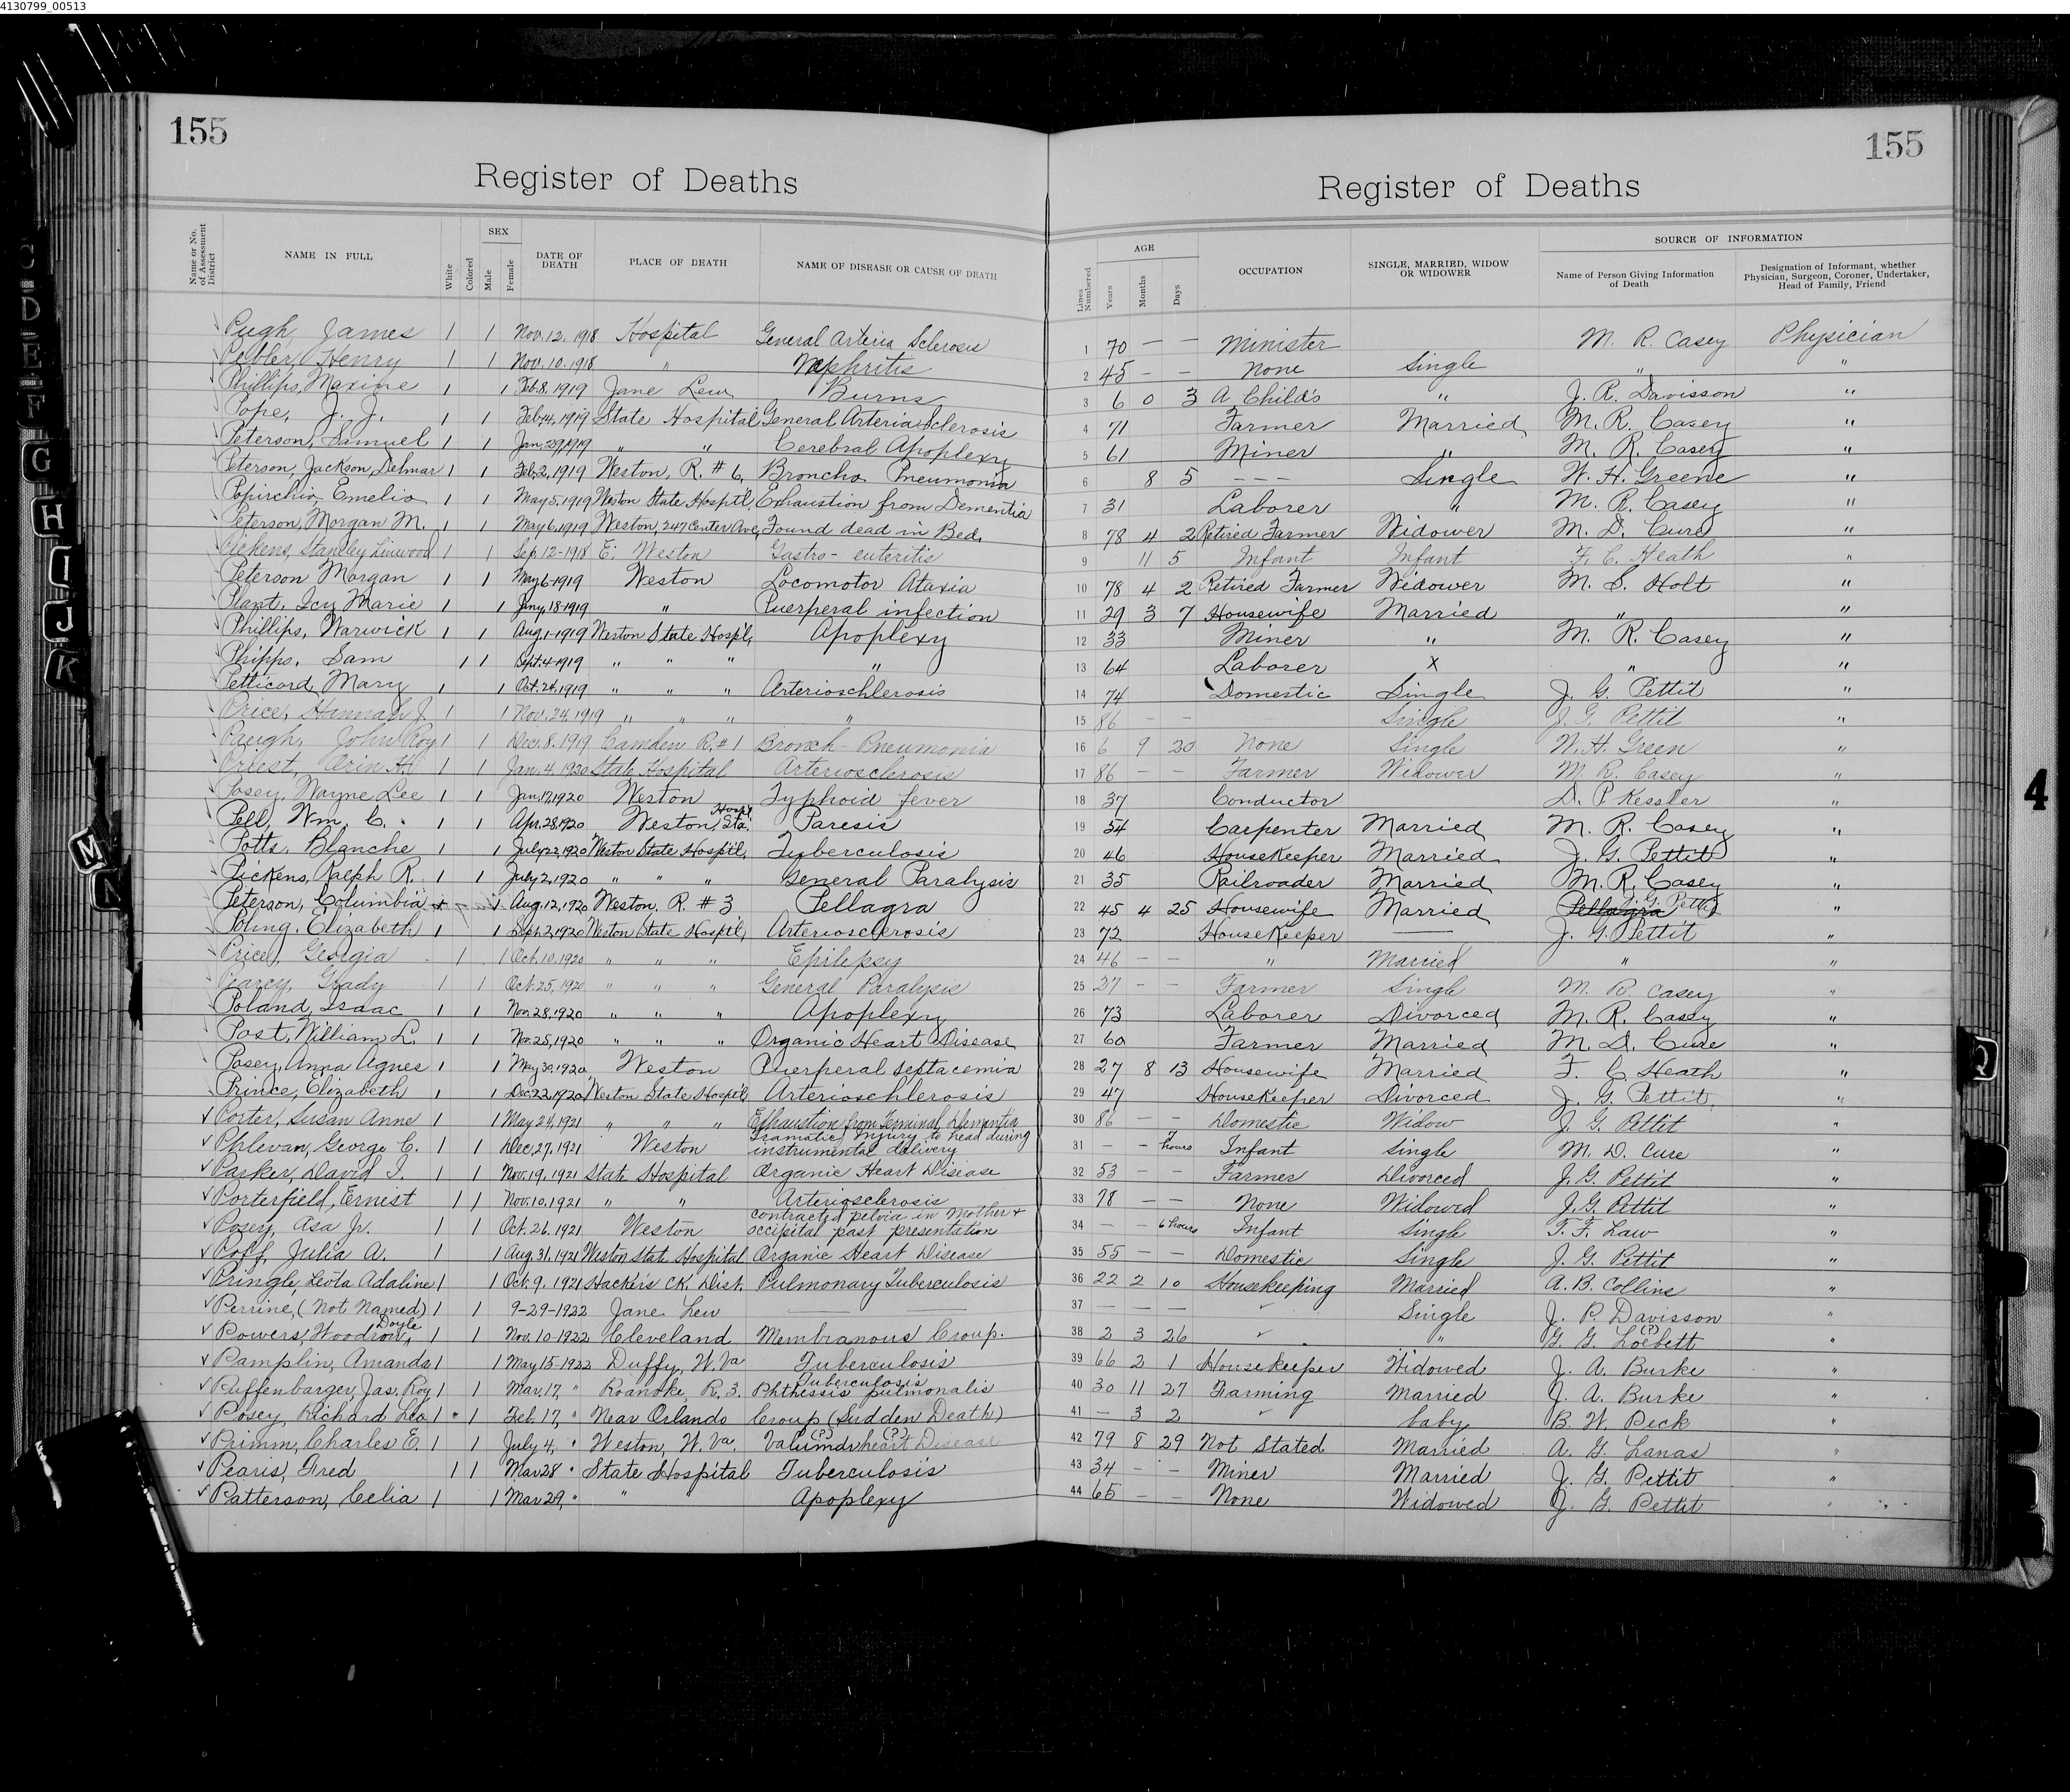 4130799_00513
155
Register of Deaths
Name or No. of Assessment District NAME IN FULL White Colored SEX Male Female DATE OF DEATH PLACE OF DEATH NAME OF DISEASE OR CAUSE OF DEATH
Pugh, James 1 1 Nov. 12, 1918 Hospital General Arteria Sclerosis
Pebler, Henry 1 1 Nov. 10. 1918 " Nephritis
Phillips, Maxine 1 1 Feb. 8. 1919 Jane Lew Burns
Pope, J. J. 1 1 Feb. 14, 1919 State Hospital General Arteria Sclerosis
Peterson, Samuel 1 1 Jan. 29, 1919 " " Cerebral Apoplexy
Peterson, Jackson Delmar 1 1 Feb. 2, 1919 Weston, R. # 6, Broncho Pneumonia
Popirchio, Emelio 1 1 May 5, 1919 Weston State Hosptl, Exhaustion from Dementia
Peterson, Morgan M. 1 1 May 6, 1919 Weston, 247 Center Ave, Found dead in Bed.
Pickens, Stanley Linwood 1 1 Sep. 12-1918 E. Weston Gastro-enteritis
Peterson Morgan 1 1 May 6-1919 Weston Locomotor Ataxia
Plant, Icy Marie 1 1 Jany. 18-1919 " Puerperal infection
Phillips, Warwick 1 1 Aug. 1-1919 Weston State Hosptl, Apoplexy
Phipps, Sam 1 1 Sept. 4-1919 " " " "
Petticord, Mary 1 1 Oct. 24, 1919 " " " Arterioschlerosis
Price, Hannah J. 1 1 Nov. 24, 1919 " " " "
Paugh, John Roy 1 1 Dec. 8. 1919 Camden R. # 1 Bronch-Pneumonia
Priest, Orin H. 1 1 Jan. 4. 1920 State Hospital Arteriosclerosis
Posey, Wayne Lee 1 1 Jan. 17, 1920 Weston Typhoid fever
Pell, Wm. C. 1 1 Apr. 28, 1920 Weston, Sta. Hospt. Paresis
Potts, Blanche 1 1 July 22, 1920 Weston State Hosptl, Tuberculosis
Pickens, Ralph R. 1 1 July 2, 1920 " " " General Paralysis
Peterson, Columbia 1 Aug. 12, 1920 Weston. R. # 3 Pellagra
Poling. Elizabeth 1 1 Sept. 2, 1920 Weston State Hosptl, Arteriosclerosis
Price, Georgia 1 1 Oct. 10. 1920 " " " Epilepsy
Piarcy, Grady 1 1 Oct. 25, 1920 " " " General Paralysis
Poland, Isaac 1 1 Nov. 28, 1920 " " " Apoplexy
Post, William L. 1 1 Nov. 25, 1920 " " " Organic Heart Disease
Posey, Anna Agnes 1 1 May 30, 1920 Weston Puerperal Septacemia
Prince, Elizabeth 1 1 Dec. 22, 1920 Weston State Hosptl, Arterioschlerosis
Porter, Susan Anne 1 1 May 24, 1921 " " " Exhaustion from Terminal dementia
Phlevan, George C. 1 1 Dec. 27, 1921 Weston Tramatic injury to head during instrumental delivery
Parker, David I. 1 1 Nov. 19, 1921 State Hospital Organic Heart Disease
Porterfield, Ernest 1 1 Nov. 10. 1921 " " Arteriosclerosis
Posey, Asa Jr. 1 1 Oct. 26, 1921 Weston contracted pelvia in mother + occipital past presentation
Poff, Julia A. 1 1 Aug. 31, 1921 Weston State Hospital Organic Heart Disease
Pringle, Leota Adaline 1 1 Oct. 9. 1921 Hackers CK. Dist. Pulmonary Tuberculosis
Perrine, (Not Named) 1 1 9-29-1922 Jane Lew
Powers, Woodrow, Doyle 1 1 Nov. 10-1922 Cleveland Membranous Croup.
Pamplin, Amanda 1 1 May 15-1922 Duffy, W. Va Tuberculosis
Puffenbarger, Jas. Roy 1 1 Mar. 17, " Roanoke, R. 3. Phthessis pulmonalis Tuberculosis
Posey, Richard Leo 1 1 Feb. 17, " Near Orlando Croup (Sudden Death)
Primm, Charles E. 1 1 July 4, " Weston, W. Va. (?) heart (?) Disease
Pearis, Fred 1 1 Mar 28 " State Hospital Tuberculosis
Patterson, Celia 1 1 Mar 29, " " " Apoplexy
155
Register of Deaths
Lines Numbered AGE Years Months Days OCCUPATION SINGLE, MARRIED, WIDOW OR WIDOWER SOURCE OF INFORMATION Name of Person Giving Information of Death Designation of Informant, whether Physician, Surgeon, Coroner, Undertaker, Head of Family, Friend
1 70 — — Minister M. R. Casey Physician
2 45 — — None Single " "
3 6 0 3 A Child's " J. R. Davisson "
4 71 Farmer Married M. R. Casey "
5 61 Miner " M. R. Casey "
6 8 5 — — — Single W. H. Greene "
7 31 Laborer " M. R. Casey "
8 78 4 2 Retired Farmer Widower M. D. Cure "
9 11 5 Infant Infant F. C. Heath "
10 78 4 2 Retired Farmer Widower M. S. Holt "
11 29 3 7 Housewife Married " "
12 33 Miner " M. R. Casey "
13 64 Laborer X " "
14 74 Domestic Single J. G. Pettit "
15 86 — — Single J. G. Pettit "
16 6 9 20 None Single W. H. Green "
17 86 — — Farmer Widower M. R. Casey "
18 37 Conductor D. P Kessler "
19 54 Carpenter Married M. R. Casey "
20 46 HouseKeeper Married J. G. Pettit "
21 35 Railroader Married M. R. Casey "
22 45 4 25 Housewife Married Pellagra J. G. Pettit "
23 72 HouseKeeper — J. G. Pettit "
24 46 — — " Married " "
25 27 — — Farmer Single M. R. Casey "
26 73 Laborer Divorced M. R. Casey "
27 60 Farmer Married M. D. Cure "
28 27 8 13 Housewife Married F. C. Heath "
29 47 HouseKeeper Divorced J. G. Pettit, "
30 86 — — Domestic Widow J. G. Pettit "
31 — — 7 hours Infant Single M. D. Cure "
32 53 — — Farmer Divorced J. G. Pettit "
33 78 — — None Widowed J. G. Pettit "
34 — — 6 hours Infant Single T. F. Law "
35 55 — — Domestic Single J. G. Pettit "
36 22 2 10 Housekeeping Married A. B. Collins "
37 — — — Single J. P. Davisson "
38 2 3 26 " G. G. (?) "
39 66 2 1 Housekeeper Widowed J. A. Burke "
40 30 11 27 Farming Married J. A. Burke "
41 — 3 2 baby B. W. Peck "
42 79 8 29 Not Stated Married A. G. Lanas "
43 34 — — Miner Married J. G. Pettit "
44 65 — — None Widowed J. G. Pettit "
D
E
F
G
H
I
J
K
M
N
Q
4